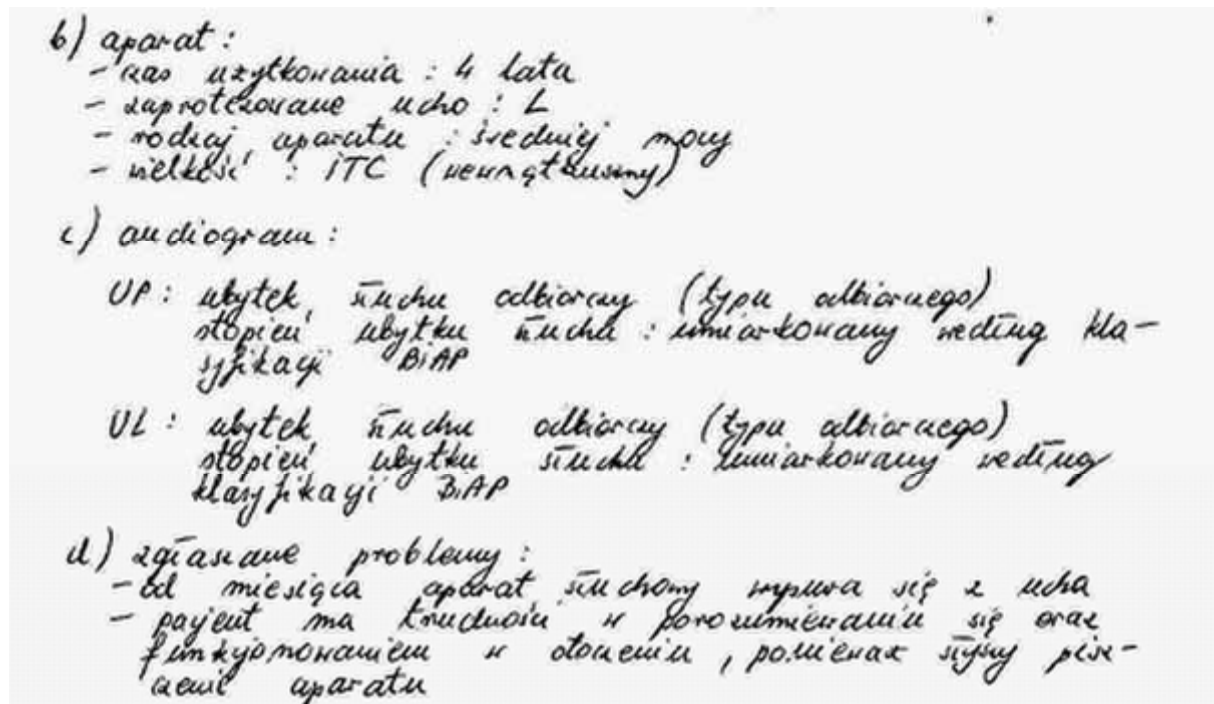 b) aparat :
- czas użytkowania : 4 lata
- zaprotezowane ucho : L
- rodzaj aparatu : średniej mocy
- wielkość : ITC (wewnątrzuszny)
c) audiogram :
UP : ubytek słuchu odbiorczy (typu odbiorczego)
stopień ubytku słuchu : umiarkowany według kla-
syfikacji BIAP
UL : ubytek słuchu odbiorczy (typu odbiorczego)
stopień ubytku słuchu : umiarkowany według
klasyfikacji BIAP
d) zgłaszane problemy :
- od miesiąca aparat słuchowy wysuwa się z ucha
- pacjent ma trudności w porozumiewaniu się oraz
funkcjonowaniem w otoczeniu , ponieważ słyszy pisz-
czenie aparatu